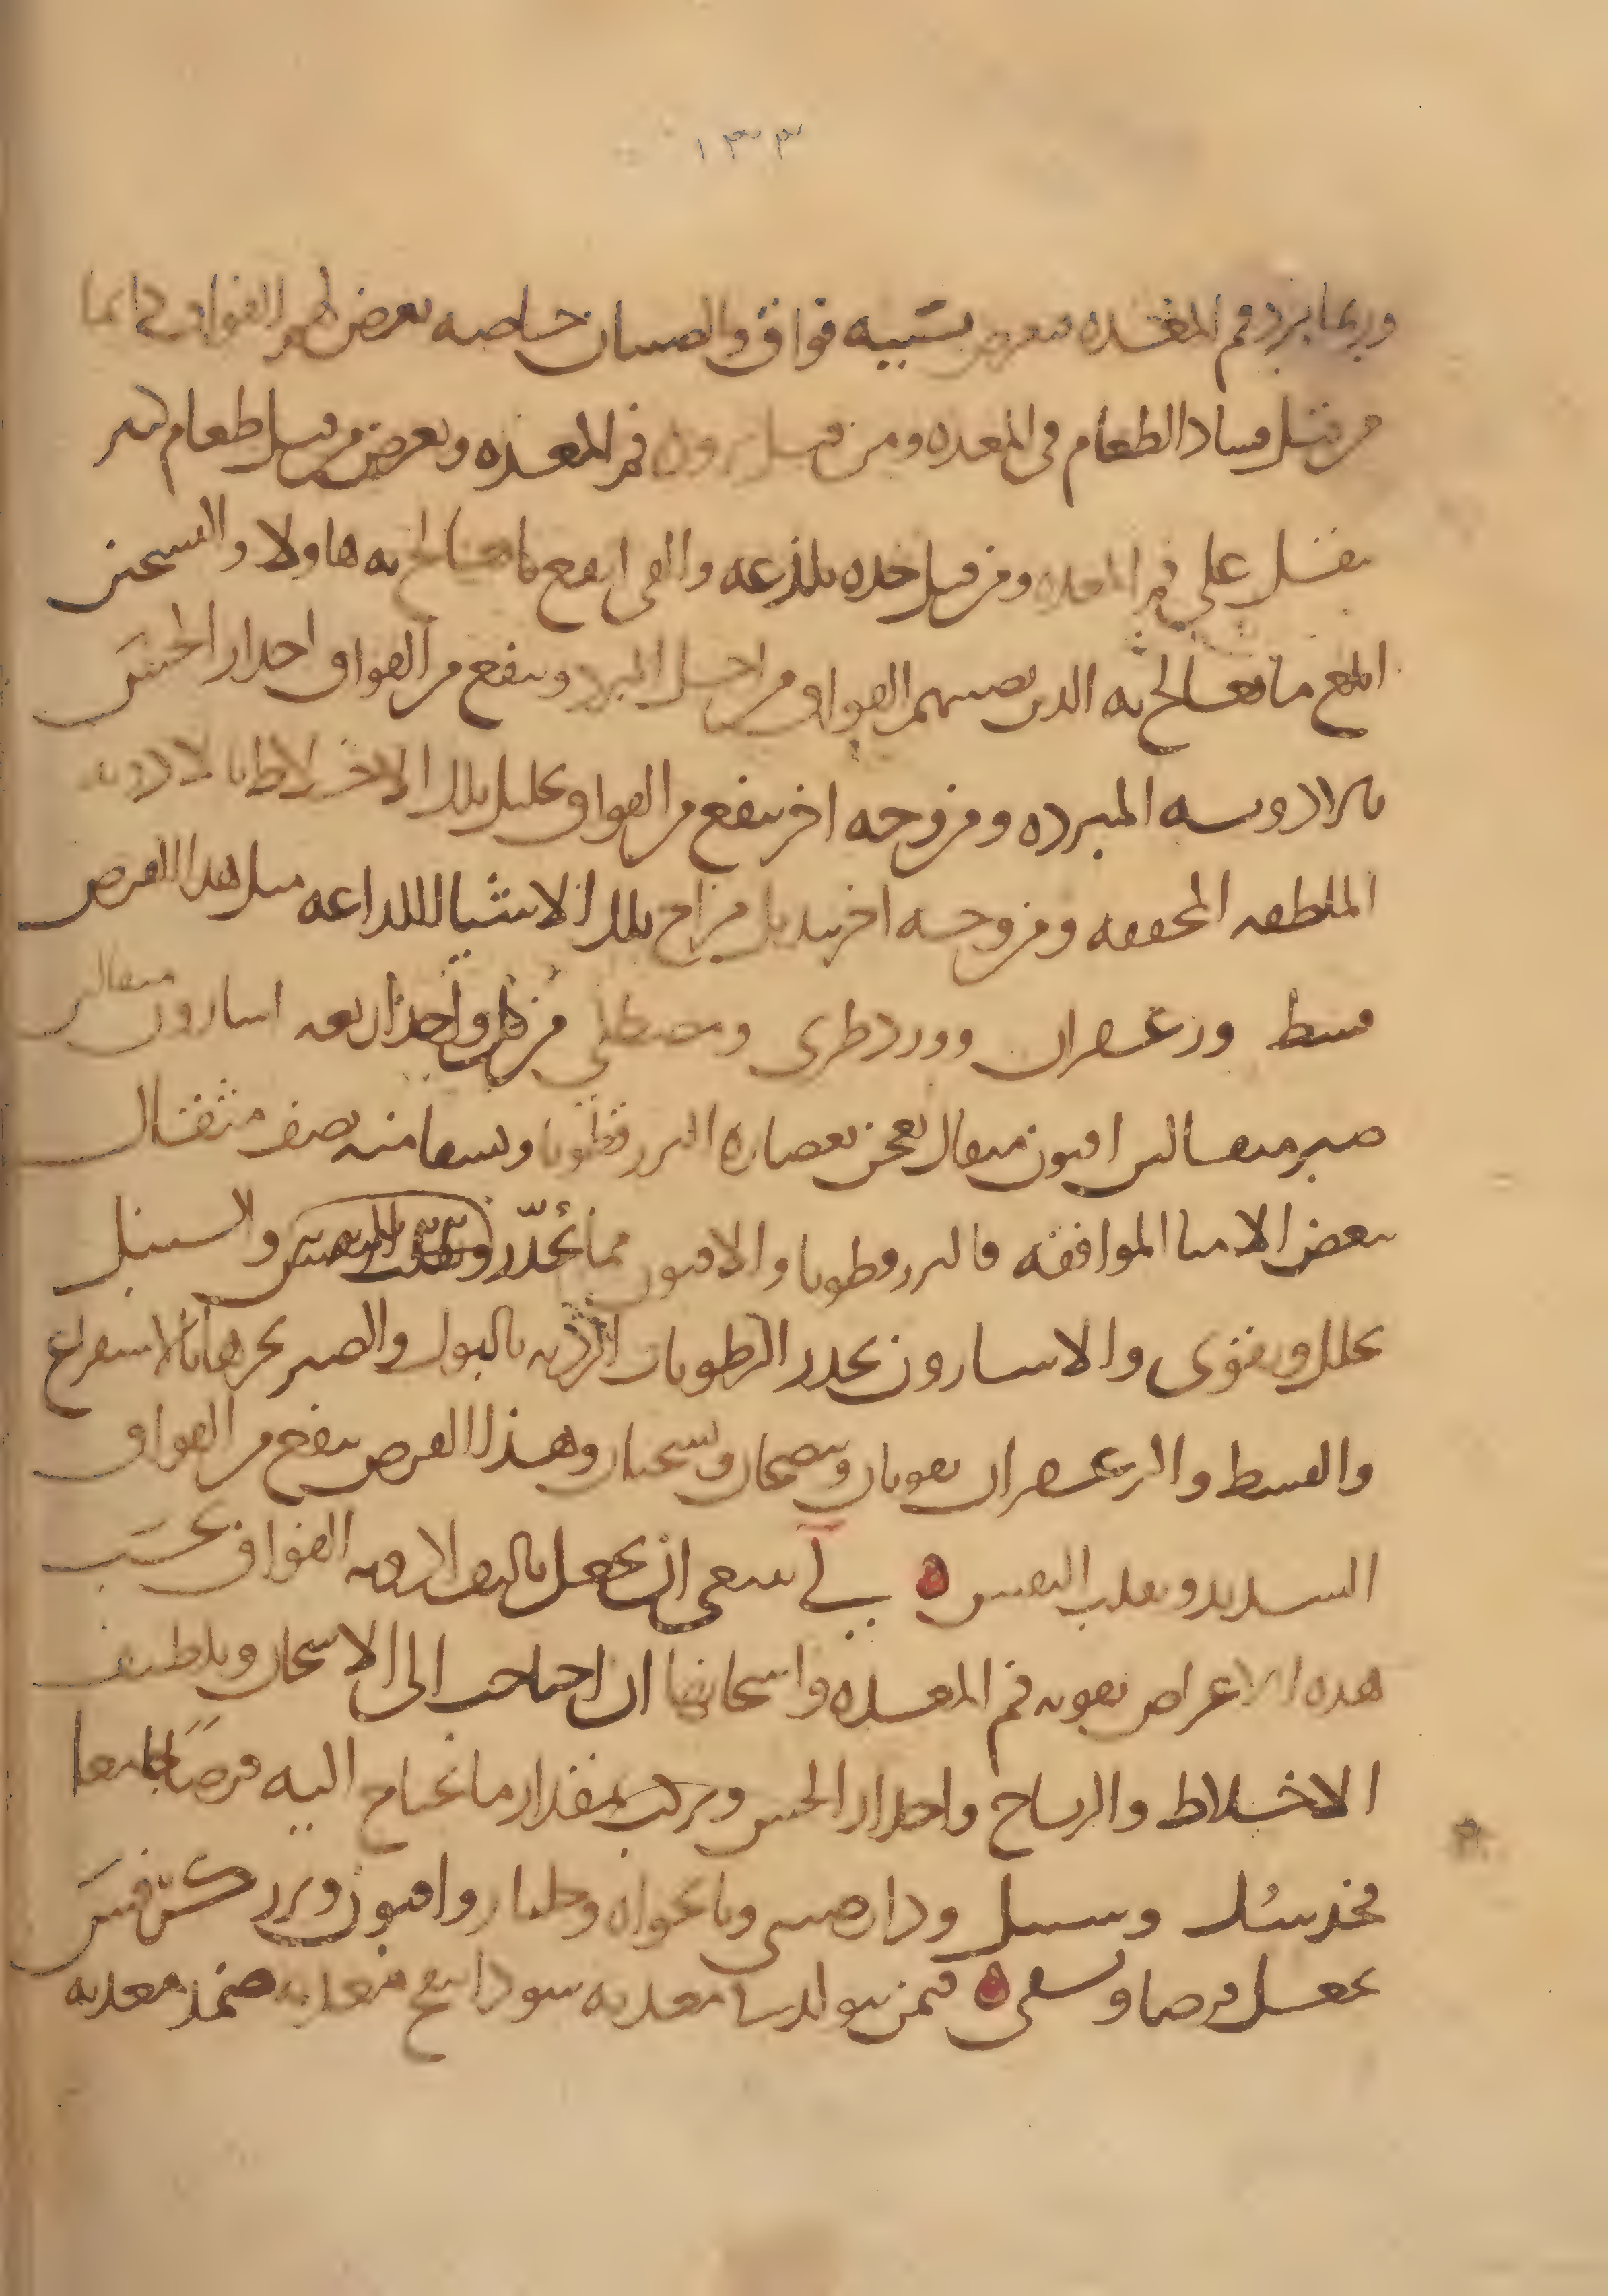 ١٣٣
وربما برد فم المعده فيعرض بسببه فواق والصبيان خاصه يعرض لهم الفواق دائما
من قبل فساد الطعام في المعده ومن قبل برد فم المعده ويعرض من قبل طعام كثير
يثقل على فم المعده ومن قبل حده تلذعه والقي انفع ما تعالج به هاولا والتسخين
انفع ما تعالج به الذين يصيبهم الفواق من اجل البرد وينفع من الفواق احدار الحس
بالادويه المبرده ومن وجه اخر ينفع من الفواق تحليل تلك الاخلاط بالادويه
الملطفه المجففه ومن وجه اخر تبديل مزاج تلك الاشيا اللذاعه مثل هذا القرص
قسط وزعفران وورد طرى ومصطكى من كل واحد اربعه اسارون مثقالين
صبر مثقالين افيون مثقال يعجن بعصاره البزرقطونا ويسقا منه نصف مثقال
ببعض الاميا الموافقه فالبزرقطونا والافيون مما يخدر والسنبل
يحلل ويقوى والاسارون يحدر الرطوبات الرديه بالبول والصبر يخرجها بالاستفراغ
والقسط والزعفران يقويان وينضجان ويسخنان وهذا القرص ينفع من الفواق
الشديد وتقلب النفس لى ينبغى ان يجعل تاليف الادويه الفواق بحسب
هذه الاعراض تقويه فم المعده واسخانها ان احتاجت الى الاسخان وتلطيف
الاخلاط والرياح واحدار الحس ويركب بمقدار ما تحتاج اليه قرصا جامعا
وسنبل ودارصينى ونانخواه وجلنار وافيون وبزر كرفس
يجعل قرصا ويسقى فيمن يتولد فى معدته سودا معدته ضمد معدته